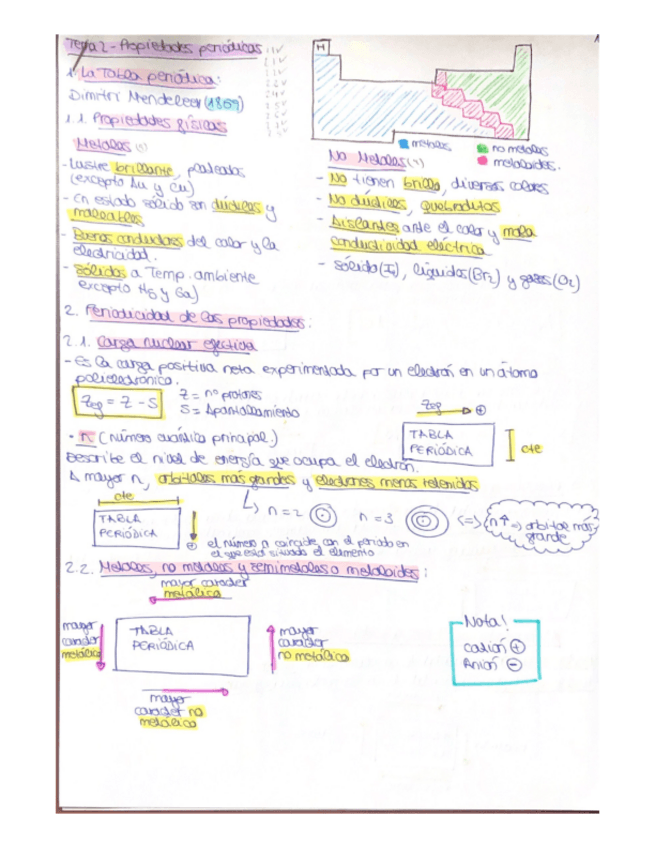 Tema 2 - Propiedades periódicas
1. La Tabla periódica:
Dimitri Mendeleev (1869)
1.1. Propiedades físicas
H
metales
no metales
metaloides.
Metales
- Lustre brillante, plateados
(excepto Au y Cu)
- En estado sólido son dúctiles y
maleables
- Buenos conductores del calor y la
electricidad.
- Sólidos a Temp. ambiente
excepto Hg y Ga)
No Metales
- No tienen brillo, diversos colores
- No dúctiles, quebradizos
- Aislantes ante el calor y mala
conductividad eléctrica
- sólido(I₂), líquidos(Br₂) y gases(O₂)
2. Periodicidad de las propiedades:
2.1. Carga nuclear efectiva
- Es la carga positiva neta experimentada por un electrón en un átomo
polielectrónico.
Zef = Z - S
Z = nº protones
S = Apantallamiento
Zef
+
TABLA
PERIÓDICA
cte
- n (número cuántico principal)
Describe el nivel de energía que ocupa el electrón.
A mayor n, orbitales más grandes y electrones menos retenidos
cte
TABLA
PERIÓDICA
+
n = 2
n = 3
<=>
n↑ => orbital más
grande
el número n coincide con el período en
el que está situado el elemento
2.2. Metales, no metales y semimetales o metaloides:
mayor caracter
metálico
mayor
caracter
metálico
TABLA
PERIÓDICA
mayor
caracter
no metálico
mayor
caracter no
metálico
Nota!
catión +
Anión -